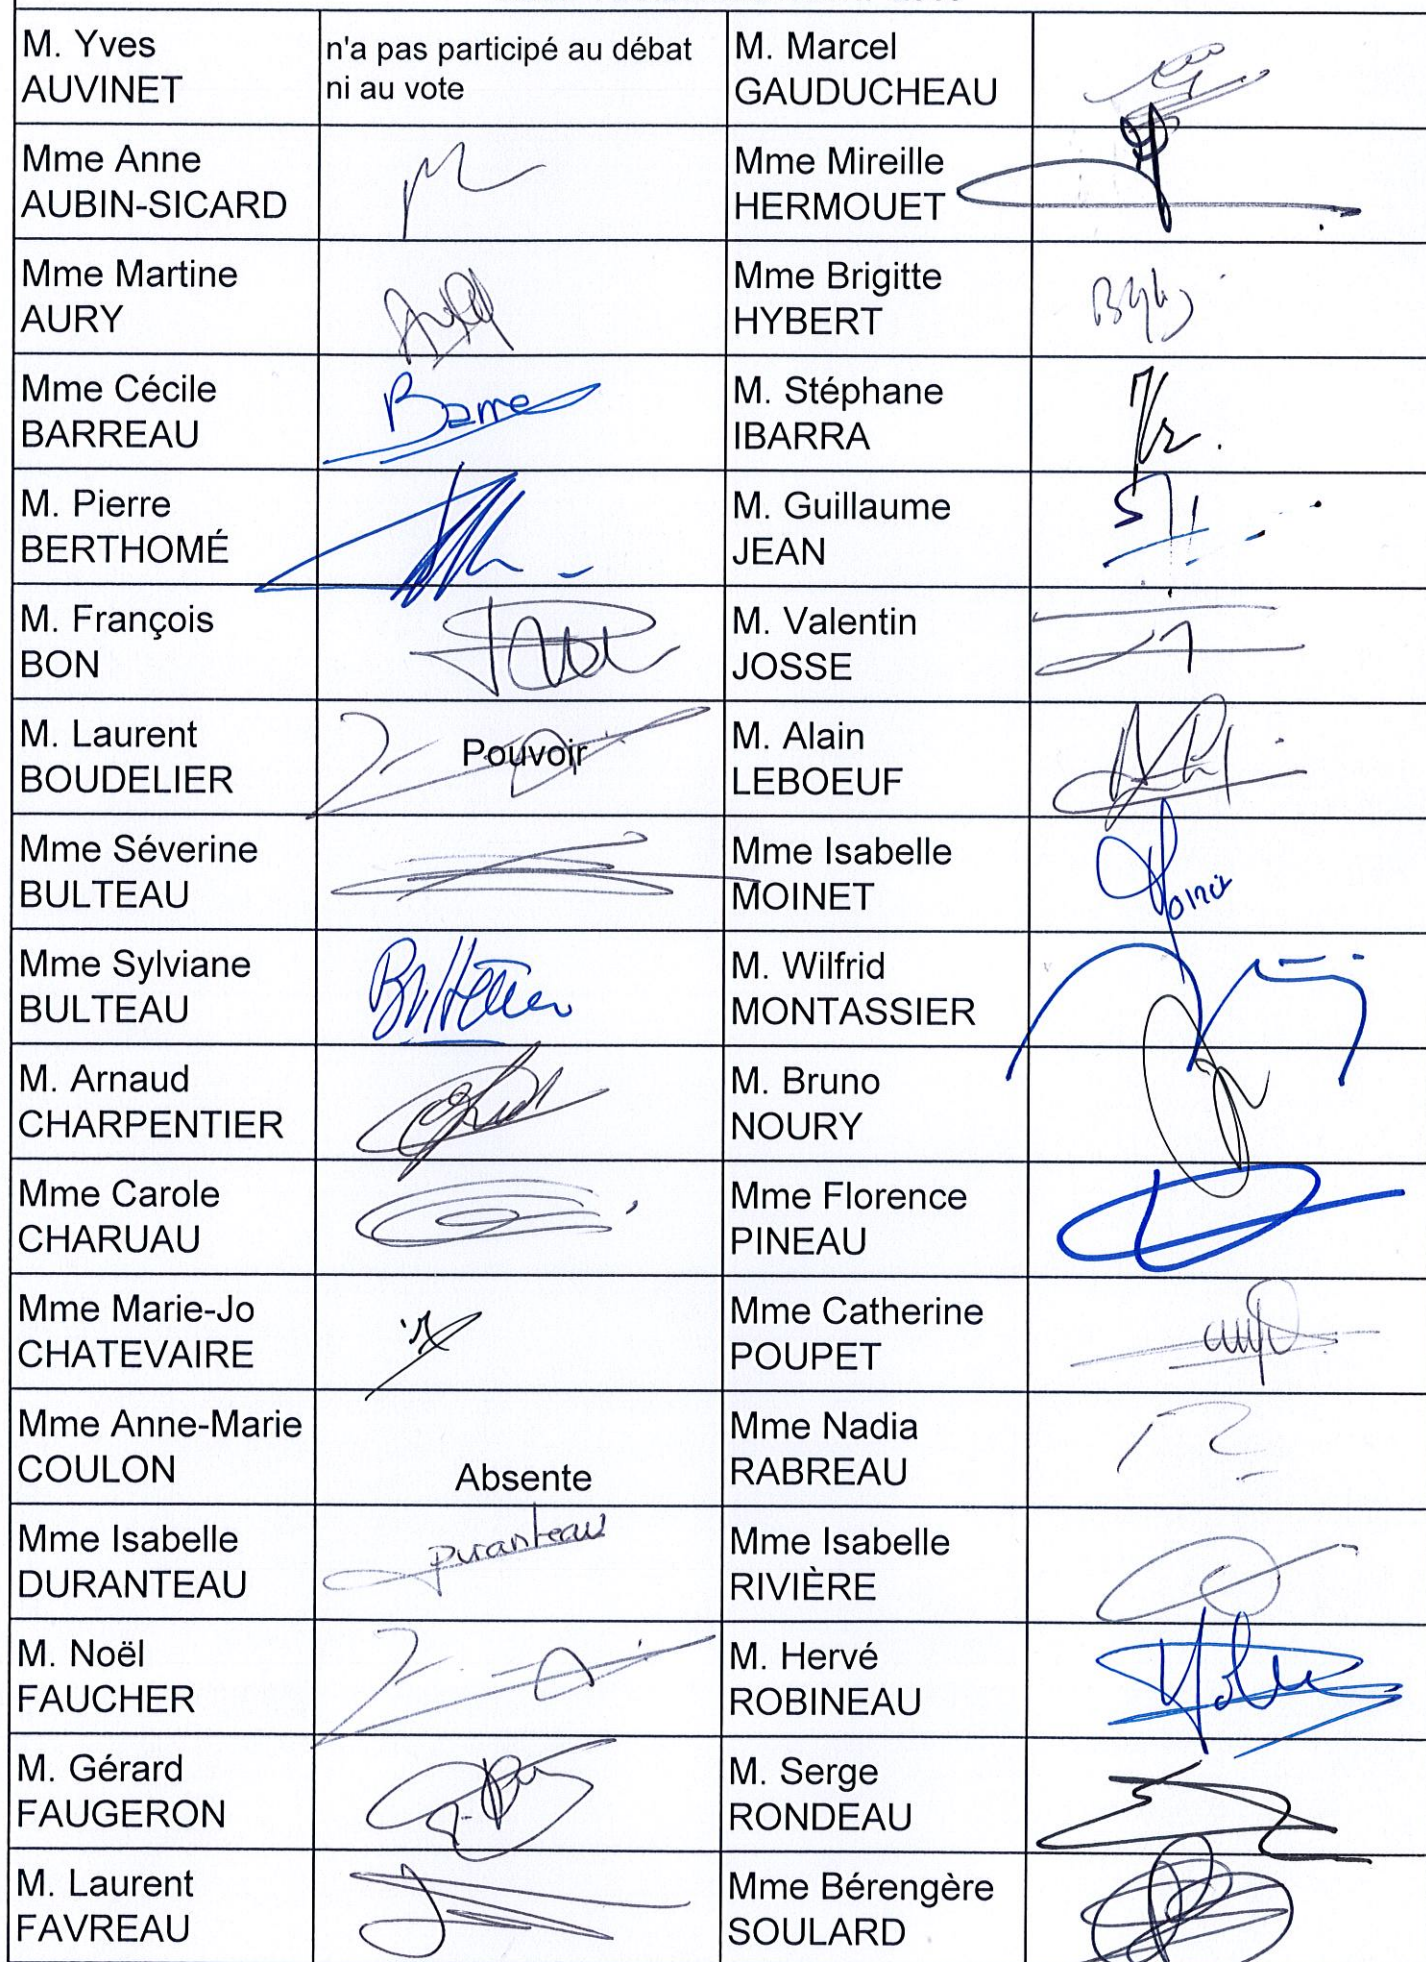 M. Yves
AUVINET
n'a pas participé au débat
ni au vote
M. Marcel
GAUDUCHEAU
Mme Anne
AUBIN-SICARD
Mme Mireille
HERMOUET
Mme Martine
AURY
Mme Brigitte
HYBERT
Mme Cécile
BARREAU
M. Stéphane
IBARRA
M. Pierre
BERTHOMÉ
M. Guillaume
JEAN
M. François
BON
M. Valentin
JOSSE
M. Laurent
BOUDELIER
Pouvoir
M. Alain
LEBOEUF
Mme Séverine
BULTEAU
Mme Isabelle
MOINET
Mme Sylviane
BULTEAU
M. Wilfrid
MONTASSIER
M. Arnaud
CHARPENTIER
M. Bruno
NOURY
Mme Carole
CHARUAU
Mme Florence
PINEAU
Mme Marie-Jo
CHATEVAIRE
Mme Catherine
POUPET
Mme Anne-Marie
COULON
Absente
Mme Nadia
RABREAU
Mme Isabelle
DURANTEAU
Duranteau
Mme Isabelle
RIVIÈRE
M. Noël
FAUCHER
M. Hervé
ROBINEAU
M. Gérard
FAUGERON
M. Serge
RONDEAU
M. Laurent
FAVREAU
Mme Bérengère
SOULARD